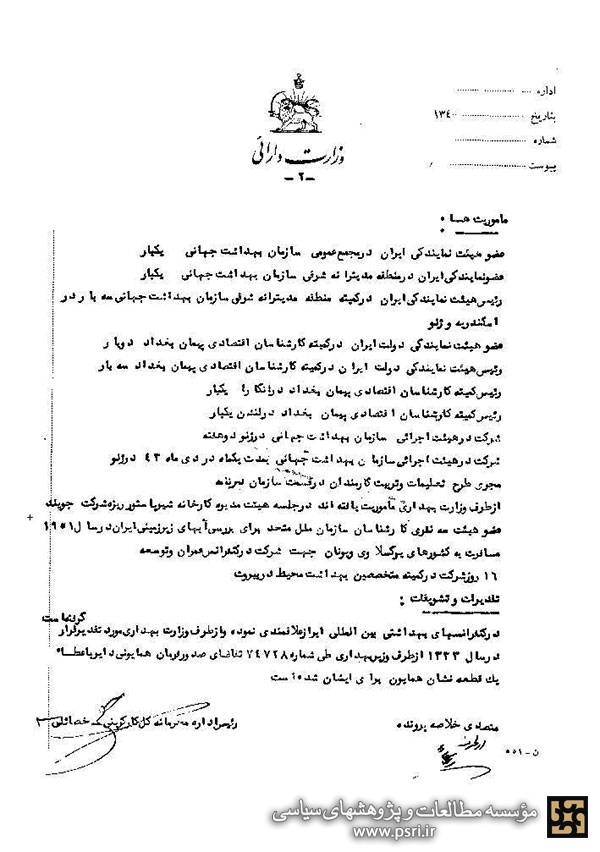 اداره
بتاریخ ۱۳۴۰
شماره
پیوست
وزارت دارائی
-۲-
ماموریت هسا :
عضو هیئت نمایندگی ایران درمجمع عمومی سازمان بهداشت جهانی یکبار
عضونمایندگی ایران درمنطقه مدیترانه شرقی سازمان بهداشت جهانی یکبار
رئیس هیئت نمایندگی ایران درکمیته منطقه مدیترانه شرقی سازمان بهداشت جهانی سه بار در
اسکندریه و ژنو
عضو هیئت نمایندگی دولت ایران درکمیته کارشناسان اقتصادی پیمان بغداد دوبار
رئیس هیئت نمایندگی دولت ایران در کمیته کارشناسان اقتصادی پیمان بغداد سه بار
رئیس کمیته کارشناسان اقتصادی پیمان بغداد درانکارا یکبار
رئیس کمیته کارشناسان اقتصادی پیمان بغداد درلندن یکبار
شرکت درهیئت اجرائی سازمان بهداشت جهانی درژنو دوهفته
شرکت درهیئت اجرائی سازمان بهداشت جهانی بمدت یکماه در دی ماه ۴۳ درژنو
مجری طرح تعلیمات وتربیت کارمندان درقسمت سازمان برنامه
ازطرف وزارت بهداری ماموریت یافته اند درجلسه هیئت مدیره کارخانه شیر پاستوریزه شرکت جویند
عضو هیئت سه نفری کارشناسان سازمان ملل متحد برای بررسی آبهای زیرزمینی ایران درسال ۱۹۵۱
مسافرت به کشورهای یوگسلاوی ویونان جهت شرکت درکنفرانس عمران وتوسعه
۱۶ روزشرکت درکمیته متخصصین بهداشت محیط دربیروت
تقدیرات و تشویقات :
درکنفرانسهای بهداشتی بین المللی ابرازعلاقمندی نموده وازطرف وزارت بهداری مورد تقدیرقرار گرفته است
درسال ۱۳۳۳ ازطرف وزیربهداری طی شماره ۷۴۷۲۸ تقاضای صدورفرمان همایونی دایر باعطاء
یک قطعه نشان همایون برای ایشان شده است
متصدی خلاصه پرونده
رئیس اداره محرمانه کل کارگزینی خصائلی
ن - ۵۵۱
مؤسسه مطالعات و پژوهشهای سیاسی
www.psri.ir